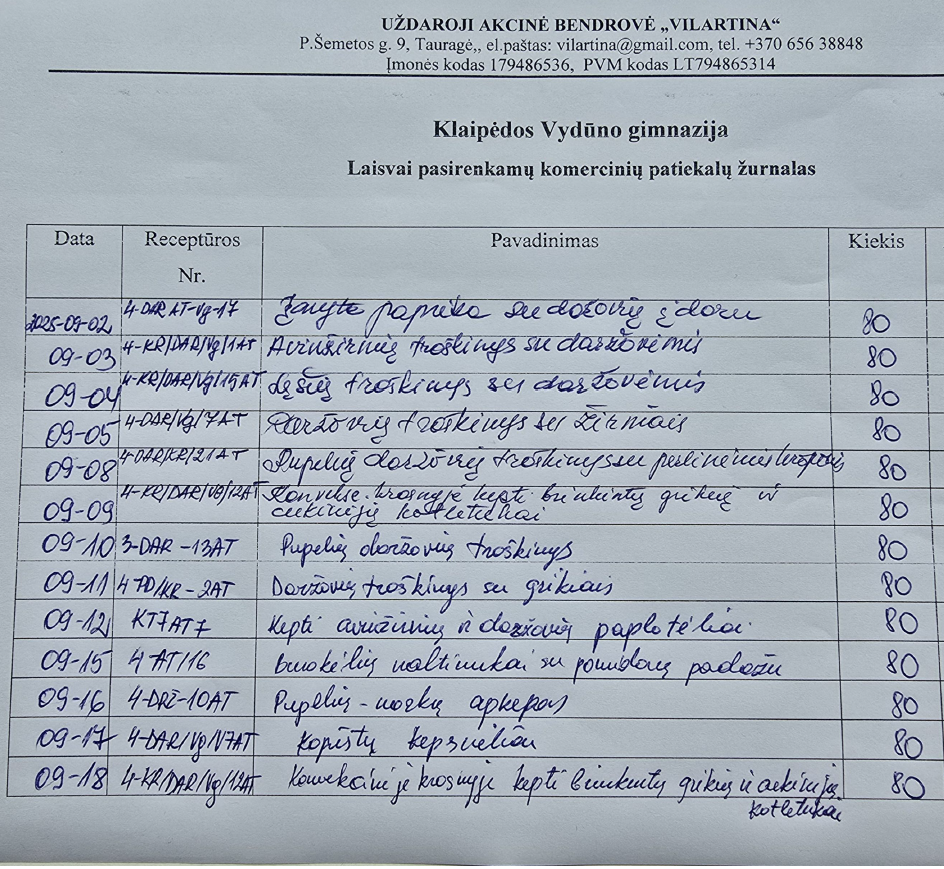 UŽDAROJI AKCINĖ BENDROVĖ „VILARTINA“
P.Šemetos g. 9, Tauragė,, el.paštas: vilartina@gmail.com, tel. +370 656 38848
Įmonės kodas 179486536, PVM kodas LT794865314
Klaipėdos Vydūno gimnazija
Laisvai pasirenkamų komercinių patiekalų žurnalas
Data Receptūros Nr. Pavadinimas Kiekis
2025-09-02 4-DAR AT-Vg-17 Įdaryta paprika su daržovių įdaru 80
09-03 4-KR/DAR/Vg/1AT Avinžirnių troškinys su daržovėmis 80
09-04 4-KR/DAR/Vg/15AT Lęšių troškinys su daržovėmis 80
09-05 4-DAR/Vg/7AT Daržovių troškinys su žirniais 80
09-08 4-DAR/KR/21AT Pupelių daržovių troškinys su perlinėmis kruopomis 80
09-09 4-KR/DAR/Vg/12AT Konvekc. krosnyje kepti brinkintų grikių ir
cukinijų kotletukai 80
09-10 3-DAR-13AT Pupelių daržovių troškinys 80
09-11 4 PD/KR-2AT Daržovių troškinys su grikiais 80
09-12 KT7AT7 Kepti avinžirnių ir daržovių paplotėliai 80
09-15 4 AT/16 Burokėlių maltinukai su pomidorų padažu 80
09-16 4-DRŽ-10AT Pupelių-morkų apkepas 80
09-17 4-DAR/Vg/17AT Kopūstų kepsneliai 80
09-18 4-KR/DAR/Vg/12AT Konvekcinėje krosnyje kepti brinkintų grikių ir cukinijų 80
kotletukai